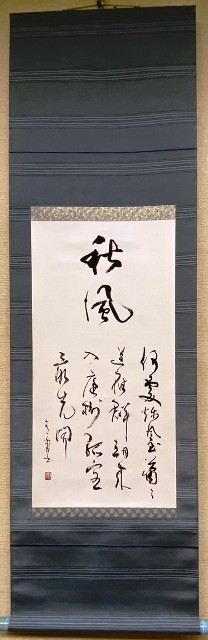 秋風
何處秋風至蕭々
送雁群朝来
入庭樹孤客
最先聞